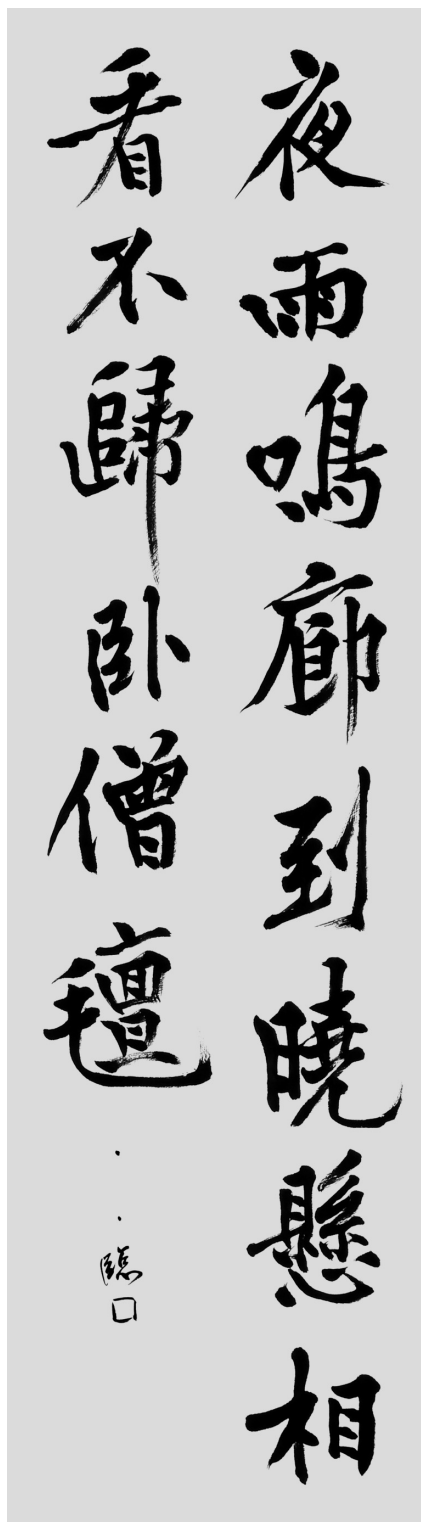 夜雨鳴廊到曉懸相
看不歸卧僧氊
臨